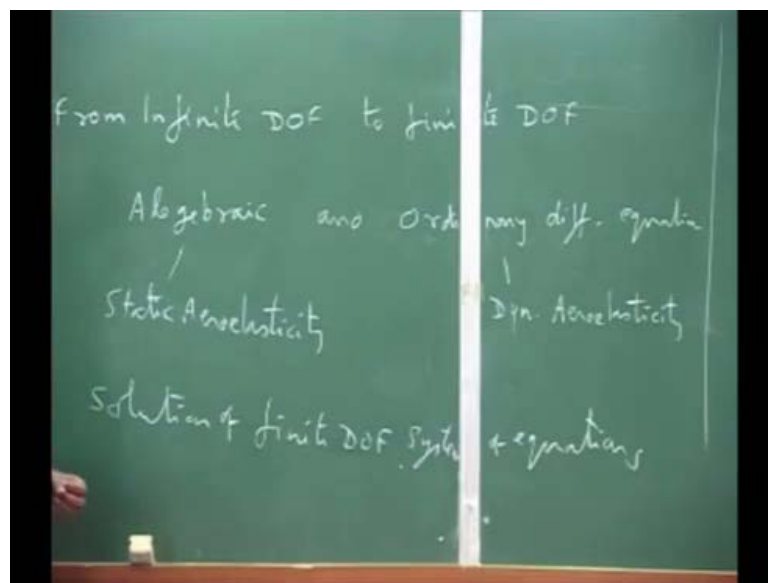 From Infinite DOF to finite DOF
Alogebraic and Ordinary diff. equation
Static Aeroelasticity Dyn. Aeroelasticity
Solution of finite DOF System of equations